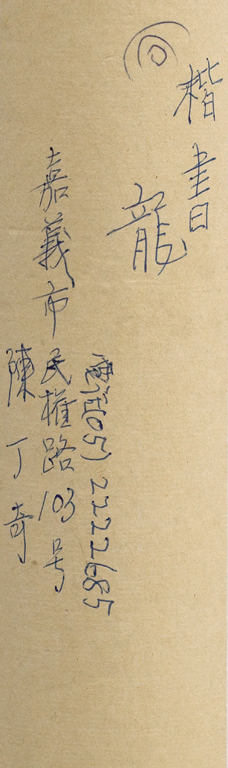 楷書
回
龍
電話(05)2222685
嘉義市民權路103号
陳丁奇